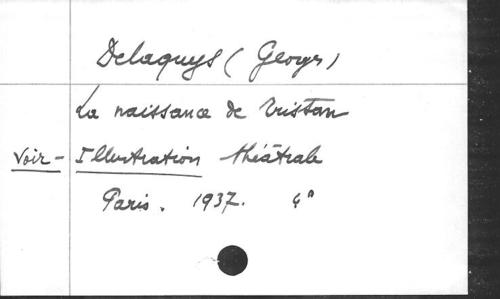 Delaquys (Georges)
La naissance de Tristan
Voir - Illustration théâtrale
Paris. 1937. 4°